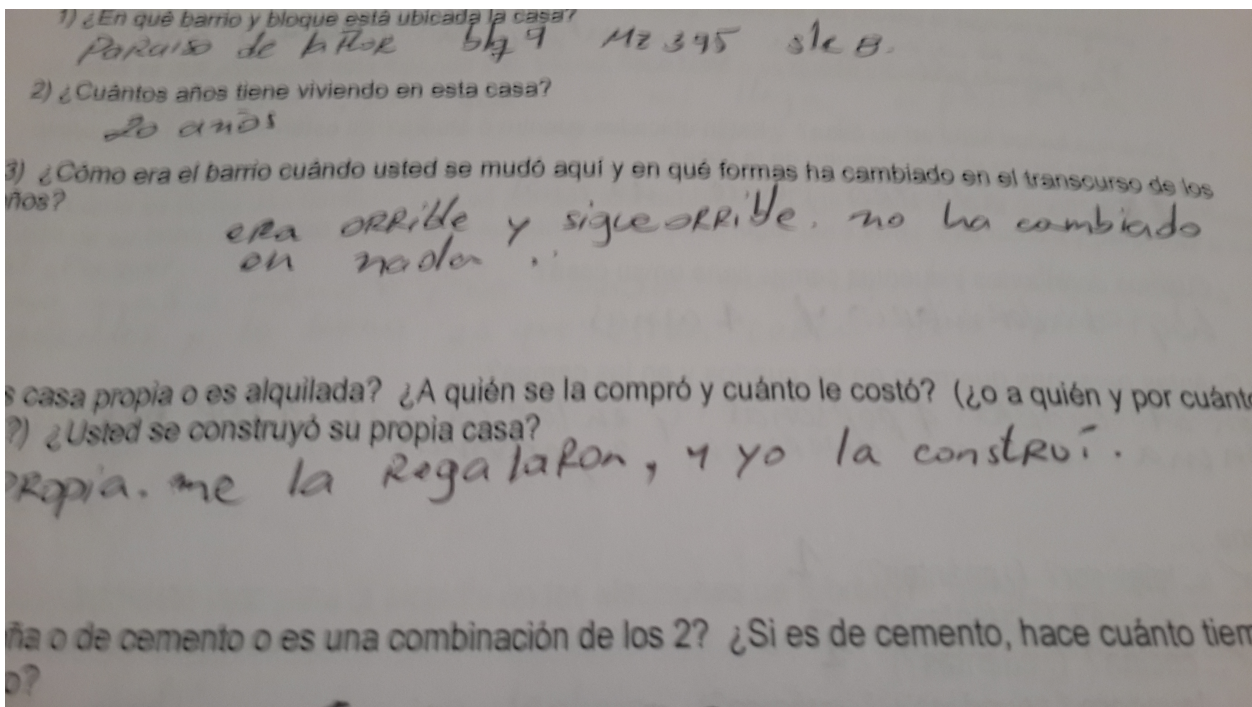 1) ¿En qué barrio y bloque está ubicada la casa?
PaRaiso de la FloR blq 9 Mz 395 slc B.
2) ¿Cuántos años tiene viviendo en esta casa?
20 años
3) ¿Cómo era el barrio cuándo usted se mudó aquí y en qué formas ha cambiado en el transcurso de los
ños?
eRa oRRible y sigue oRRible. no ha cambiado
en nada.
s casa propia o es alquilada? ¿A quién se la compró y cuánto le costó? (¿o a quién y por cuánto
?) ¿Usted se construyó su propia casa?
PRopia. me la RegalaRon, y yo la constRuí.
ña o de cemento o es una combinación de los 2? ¿Si es de cemento, hace cuánto tiem
o?